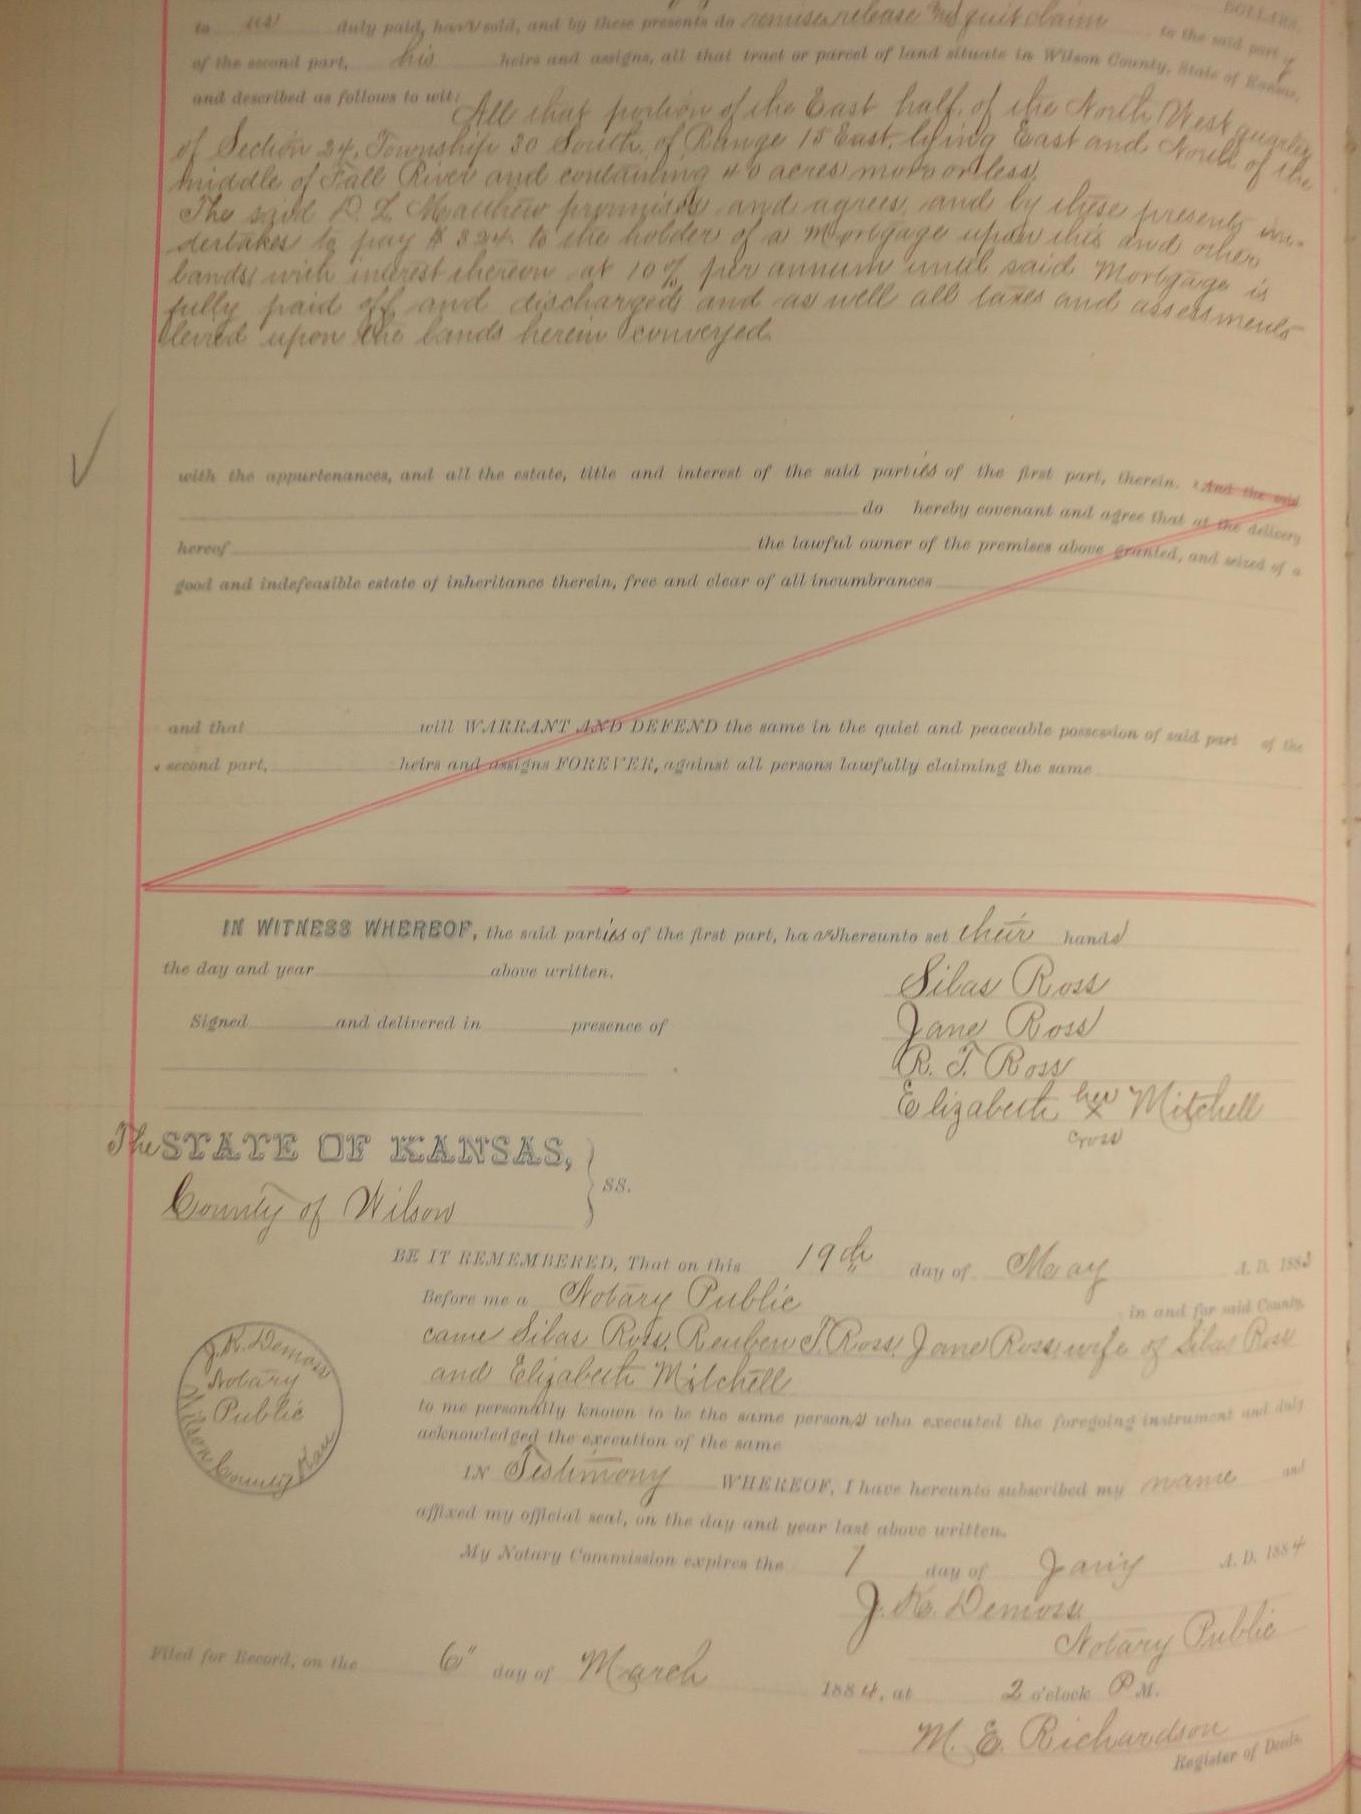 DOLLARS,
to us duly paid, have sold, and by these presents do remise release and quit claim to the said party
of the second part, his heirs and assigns, all that tract or parcel of land situate in Wilson County, State of Kansas,
and described as follows to wit: All that portion of the East half of the North West quarter
of Section 24, Township 30 South, of Range 15 East, lying East and North of the
middle of Fall River and containing 40 acres more or less,
The said D. L. Matthew promises and agrees, and by these presents un-
dertakes to pay $324. to the holder of a Mortgage upon this and other
lands with interest thereon at 10% per annum until said Mortgage is
fully paid off and discharged, and as well all taxes and assessments
levied upon the lands herein conveyed.
with the appurtenances, and all the estate, title and interest of the said parties of the first part, therein. And the said
do hereby covenant and agree that at the delivery
hereof the lawful owner of the premises above granted, and seized of a
good and indefeasible estate of inheritance therein, free and clear of all incumbrances
and that will WARRANT AND DEFEND the same in the quiet and peaceable possession of said part of the
second part, heirs and assigns FOREVER, against all persons lawfully claiming the same
IN WITNESS WHEREOF, the said parties of the first part, have hereunto set their hands
the day and year above written.
Silas Ross
Signed and delivered in presence of
Jane Ross
R. T. Ross
Elizabeth her x Mitchell
cross
The STATE OF KANSAS,
County of Wilson } SS.
BE IT REMEMBERED, That on this 19th day of May A. D. 1883
Before me a Notary Public in and for said County,
came Silas Ross, Reuben T. Ross, Jane Ross, wife of Silas Ross
and Elizabeth Mitchell
to me personally known to be the same persons who executed the foregoing instrument and duly
acknowledged the execution of the same
J. K. Demoss
Notary
Public
Wilson County Kan
IN Testimony WHEREOF, I have hereunto subscribed my name and
affixed my official seal, on the day and year last above written.
My Notary Commission expires the 7 day of Jany A. D. 1884
J. K. Demoss
Notary Public
Filed for Record, on the 6" day of March 1884, at 2 o'clock P M.
M. E. Richardson
Register of Deeds.